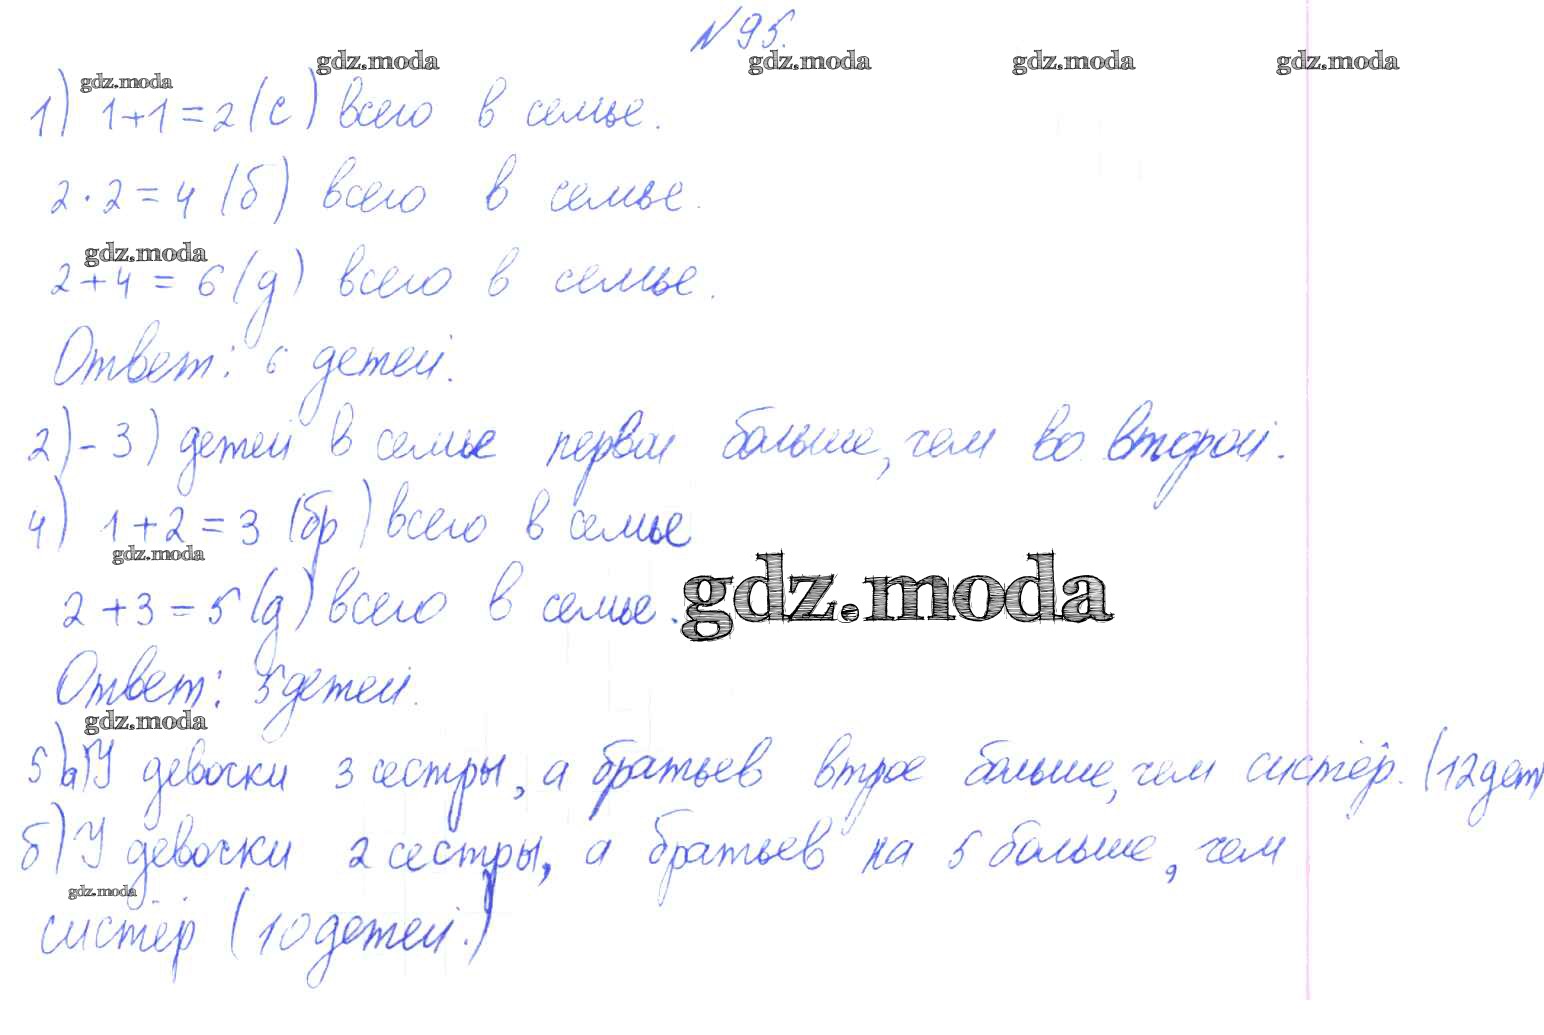 №95.
gdz.moda gdz.moda gdz.moda gdz.moda gdz.moda
1) 1+1=2 (с) всего в семье.
2·2=4 (б) всего в семье.
gdz.moda
2+4=6 (д) всего в семье.
Ответ: 6 детей.
2)-3) детей в семье первой больше, чем во второй.
4) 1+2=3 (бр) всего в семье
gdz.moda
gdz.moda
2+3=5 (д) всего в семье.
Ответ: 5 детей.
gdz.moda
5) а) У девочки 3 сестры, а братьев втрое больше, чем систёр. (12 дет)
б) У девочки 2 сестры, а братьев на 5 больше, чем
gdz.moda
систёр (10 детей.)